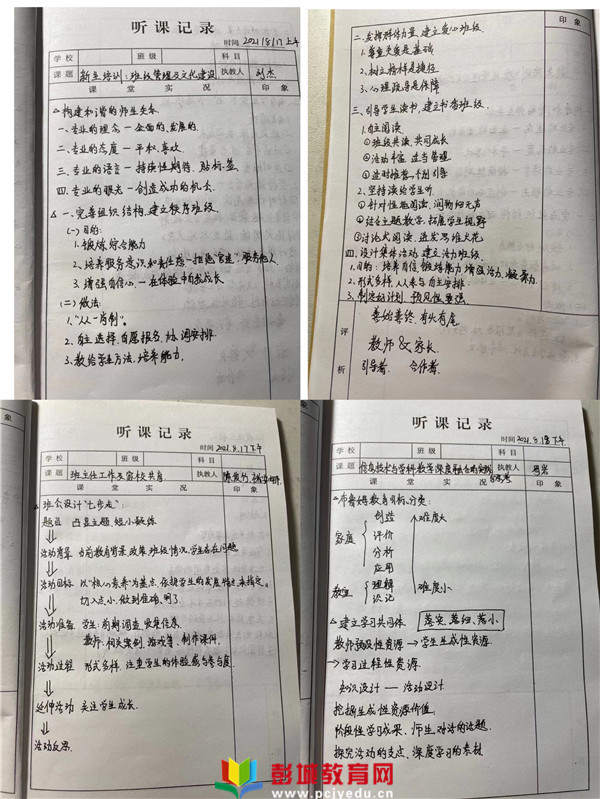 听课记录
时间 2021.8.17上午
学校 班级 科目
课题 新生培训:班级管理及文化建设 执教人 刘杰
课堂实况 印象
△构建和谐的师生关系
一、专业的理念—全面的、发展的.
二、专业的态度—平和、喜欢.
三、专业的语言—持续性期待、贴标签
四、专业的眼光—创造成功的机会.
△一、完善组织结构,建立秩序班级
(一)目的:
1.锻炼综合能力
2、培养服务意识和责任感—拒绝"官迷",服务他人
3、增强自信心—在体验中自我成长
(二)做法:
1."人人一岗制".
2、自主选择、自愿报名、协调安排.
3、教给学生方法、培养能力.
印象
二、发挥群体力量,建立爱心班级.
1、尊重关爱是基础
2、树立榜样是捷径
3、心理疏导是保障
三、引导学生读书,建立书香班级.
1、自主阅读
①班级共读、共同成长
②活动丰富 适当管理
③适时推荐 计划引导
2、坚持读给学生听
①针对性听阅读,润物细无声
②结合主题教学,拓展学生视野
③讨论式阅读,迸发思维火花
四、设计集体活动,建立活力班级.
1、目的:培养自信,锻炼能力,增强活力、凝聚力.
2、形式多样,人人参与,自主安排.
3、制定好计划,预见性要强.
善始善终,有头有尾
评析
教师&家长.
引导者. 合作者.
听课记录
时间 2021.8.17下午
学校 班级 科目
课题 班主任工作及家校共育 执教人
课堂实况 印象
△班会设计"七步走":
题目 凸显主题、短小精炼
活动背景 当前教育背景 政策 班级情况,学生存在问题
活动目标 以"核心素养"为基点,依据学生的发展特点来指定.
切入点小,做到准确、明了.
活动准备 学生:前期调查、收集信息.
教师:相关案例、游戏等、制作课件.
活动过程 形式多样,注重学生的体验感与参与度.
延伸活动 关注学生成长.
活动反思.
听课记录
时间 2021.8.18上午
学校 班级 科目
课题 信息技术与学科教学深度融合的实践与思考 执教人
课堂实况 印象
△布鲁姆教育目标分类:
创造 难度大
家庭 评价
分析
应用
教室 理解 难度小
识记
△建立学习共同体 落实、落细、落小
教师预设性资源→学生生成性资源
→学习过程性资源.
知识设计——活动设计
挖掘生成性资源价值:
阶段性学习成果、师生对话的话题.
探究活动的支点、深度学习的素材
彭城教育网
www.pcjyedu.cn